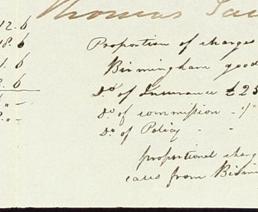 Thomas
12. 6
18. 6 Proportion of charges
1. 6 Birmingham good
2. 6 Do of Insurance £25
Do of commission
Do of Policy
proportional charg
cases from Birm